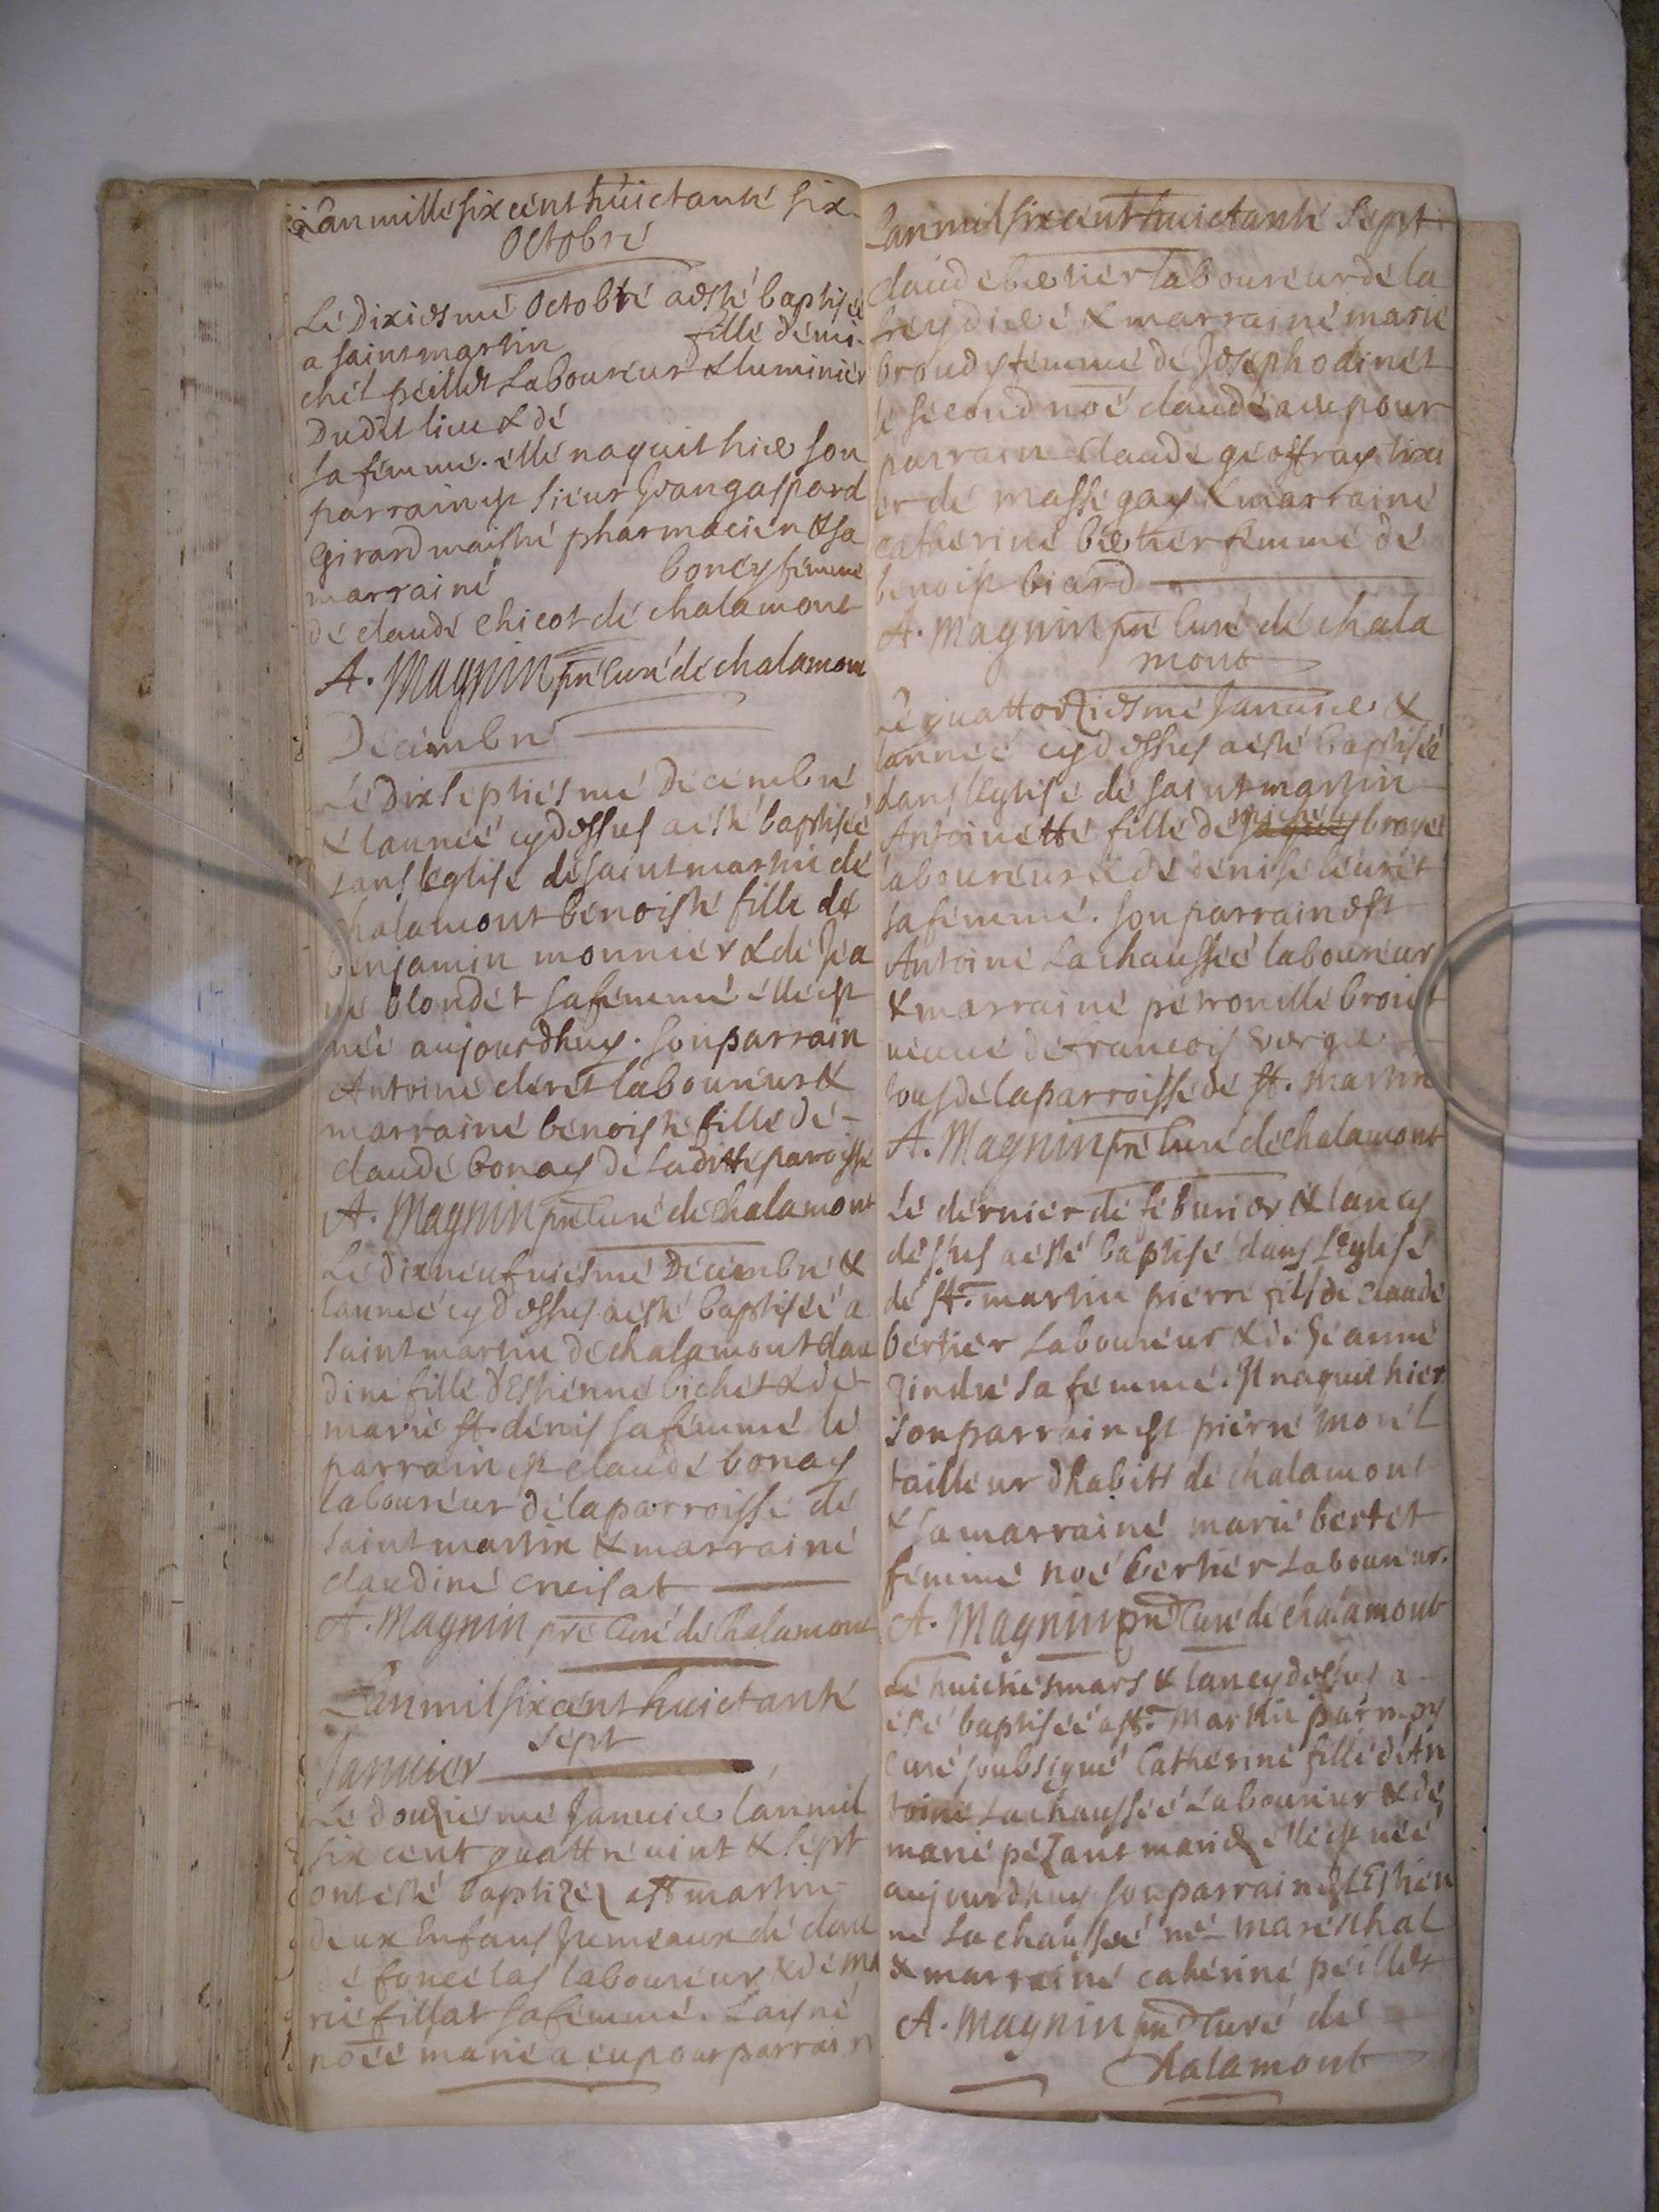 L'an mille six cent huictante six
Octobre
Le dixiesme Octobre a esté baptisée
a saint martin fille de mi-
chel peillet Laboureur & luminier
dudit lieu & de
sa femme. elle naquit hier son
parrain est sieur Jean gaspard
Girard maistre pharmacien & sa
marraine boney femme
de claude chicot de chalamont
A. Magnin pre Curé de chalamont
Decembre
Le dix septiesme Decembre
& l'année cy dessus a esté baptisée
dans l'eglise de saint martin de
chalamont benoiste fille de
benjamin monnier & de Jea
ne blondet sa femme elle est
née aujourdhuy. son parrain
Antoine cleret laboureur &
marraine benoiste fille de -
claude bonay de laditte paroisse
A. Magnin pre Curé de Chalamont
Le dixneufviesme Decembre &
l'année cy dessus a esté baptisée a
saint martin de chalamont clau
dine fille d'Estienne bichet & de
marie st. denis sa femme le
parrain est claude bonay
laboureur de la parroisse de
saint martin & marraine
claudine creisat
A. Magnin pre Curé de Chalamont
L'an mil six cent huictante
sept
Januier
Le douziesme Januier l'an mil
six cent quattre vint & sept
ont esté baptizez a st martin
deux Enfans Jumeaux de clau
de foncelas laboureur & de ma
rie fillat sa femme. L'aisné
noée marie a eu pour parrain
L'an mil six cent huictante sept
claude bertier laboureur de la
freydiere & marraine marie
broud femme de Joseph odinet
le second noé claude a eu pour
parrain claude geoffray tixi
er de massegay & marraine
catherine bertier femme de
benoist biard
A. Magnin pre Curé de chala
mont
Le quattorziesme Januier &
l'année cy dessus a esté baptisée
dans l'eglise de saint martin
Antoinette fille de michel broyer
laboureur & de denise leuret
sa femme. son parrain est
Antoine Lachaussée laboureur
& marraine petronille broiet
veaue de francois verger
tous de la parroisse de st. martin
A. Magnin pre Curé de chalamont
Le dernier de feburier & l'an cy
dessus a esté baptisé dans l'Eglise
de st. martin pierre fils de claude
bertier Laboureur & de Jeanne
gindre sa femme. Il naquit hier
son parrain est pierre morel
tailleur d'habits de chalamont
& sa marraine marie bertet
femme noé bertier Laboureur.
A. Magnin pre Curé de chalamont
Le huictiesmars & l'an cy dessus a
esté baptisée a st. Martin par moy
curé soubsigné Catherine fille d'An
toine Lachaussée Laboureur & de
marie pezant mariez elle est née
aujourdhuy son parrain est Estien
ne Lachaussée me mareschal
& marraine caherine peillet
A. Magnin pre Curé de
Chalamont